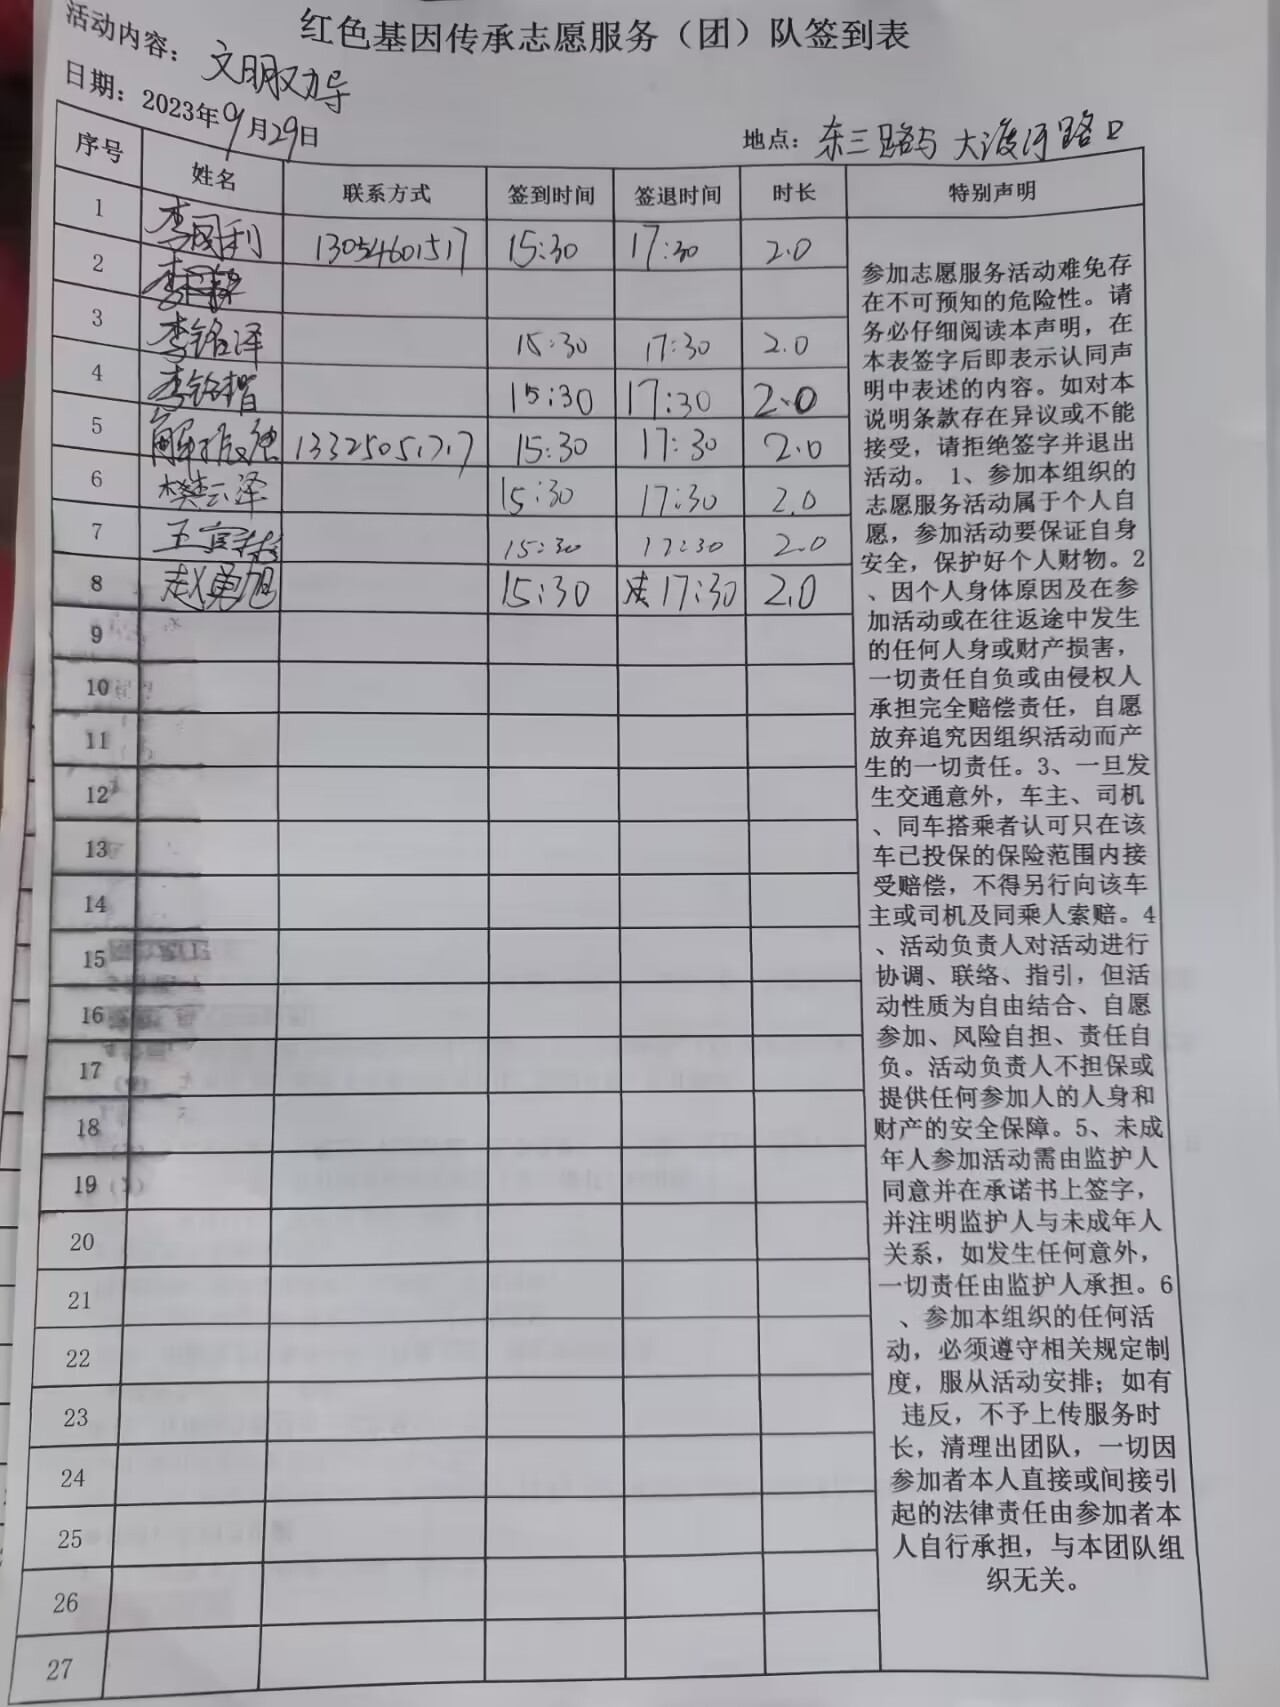 红色基因传承志愿服务（团）队签到表
活动内容： 文明劝导
日期： 2023年9月29日
地点： 东三路与大渡河路口
序号 姓名 联系方式 签到时间 签退时间 时长 特别声明
1 李国利 13054601517 15:30 17:30 2.0
2
3 李铭泽 15:30 17:30 2.0
4 李铭楷 15:30 17:30 2.0
5 解振强 15:30 17:30 2.0
6 樊云泽 15:30 17:30 2.0
7 15:30 17:30 2.0
8 赵勇旭 15:30 17:30 2.0
9
10
11
12
13
14
15
16
17
18
19
20
21
22
23
24
25
26
27
参加志愿服务活动难免存
在不可预知的危险性。请
务必仔细阅读本声明，在
本表签字后即表示认同声
明中表述的内容。如对本
说明条款存在异议或不能
接受，请拒绝签字并退出
活动。 1、参加本组织的
志愿服务活动属于个人自
愿，参加活动要保证自身
安全，保护好个人财物。2
、因个人身体原因及在参
加活动或在往返途中发生
的任何人身或财产损害，
一切责任自负或由侵权人
承担完全赔偿责任，自愿
放弃追究因组织活动而产
生的一切责任。3、一旦发
生交通意外，车主、司机
、同车搭乘者认可只在该
车已投保的保险范围内接
受赔偿，不得另行向该车
主或司机及同乘人索赔。4
、活动负责人对活动进行
协调、联络、指引，但活
动性质为自由结合、自愿
参加、风险自担、责任自
负。活动负责人不担保或
提供任何参加人的人身和
财产的安全保障。5、未成
年人参加活动需由监护人
同意并在承诺书上签字，
并注明监护人与未成年人
关系，如发生任何意外，
一切责任由监护人承担。6
、参加本组织的任何活
动，必须遵守相关规定制
度，服从活动安排；如有
违反，不予上传服务时
长，清理出团队，一切因
参加者本人直接或间接引
起的法律责任由参加者本
人自行承担，与本团队组
织无关。